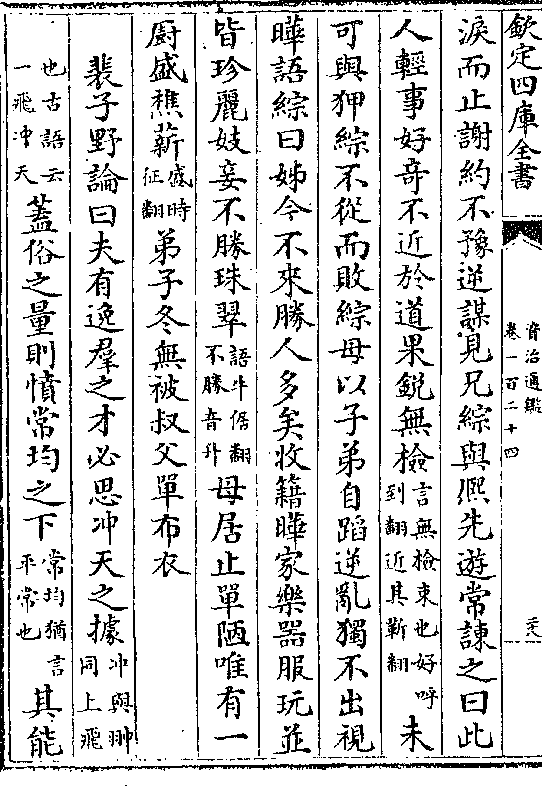 欽定四庫全書
資治通鑑
卷一百二十四
淚而止謝約不豫逆謀見兄綜與熈先遊常諫之曰此
人輕事好竒不近於道果鋭無檢言無檢束也好呼
到翻近其靳翻未
可與狎綜不從而敗綜母以子弟自蹈逆亂獨不出視
曄語綜曰姊今不來勝人多矣收籍曄家樂器服玩並
皆珍麗妓妾不勝珠翠語牛倨翻
不勝音升母居止單陋唯有一
厨盛樵薪盛時
征翻弟子冬無被叔父單布衣
裴子野論曰夫有逸羣之才必思冲天之據冲與翀
同上飛
也古語云
一飛冲天蓋俗之量則僨常均之下常均猶言
平常也其能